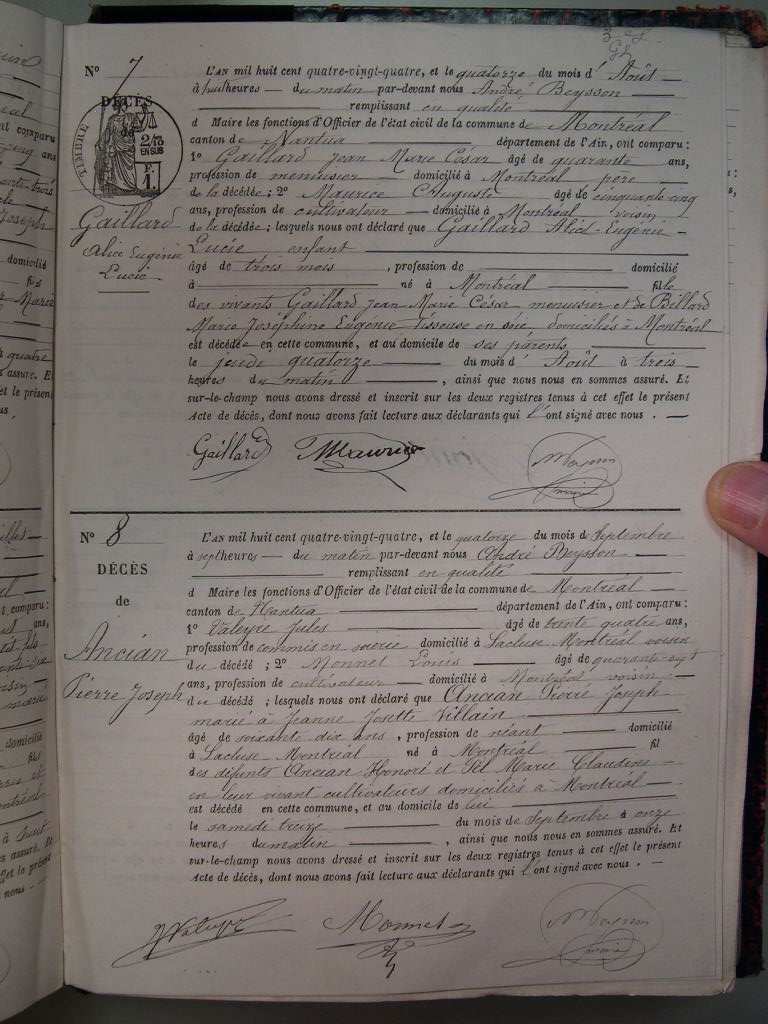 N° 7
L'AN mil huit cent quatre-vingt-quatre, et le quatorze du mois d'Août
à huit heures du matin par-devant nous André Beysson
remplissant en qualité
d Maire les fonctions d'Officier de l'état civil de la commune de Montréal
canton de Nantua département de l'Ain, ont comparu:
1° Gaillard Jean Marie César âgé de quarante ans,
profession de menuisier domicilié à Montréal pere
de la décédée; 2° Maurice Auguste âgé de cinquante-cinq
ans, profession de cultivateur domicilié à Montréal voisin
de la décédée; lesquels nous ont déclaré que Gaillard Alice-Eugénie-
Lucie enfant
âgé de trois mois, profession de domicilié
à né à Montréal fille
des vivants Gaillard Jean Marie César menuisier et de Billard
Marie Joséphine Eugénie tisseuse en soie, domiciliés à Montréal
est décédée en cette commune, et au domicile de ses parents
le jeudi quatorze du mois d'Août à trois
heures du matin, ainsi que nous nous en sommes assuré. Et
sur-le-champ nous avons dressé et inscrit sur les deux registres tenus à cet effet le présent
Acte de décès, dont nous avons fait lecture aux déclarants qui l'ont signé avec nous.
DÉCÈS
de
TIMBRE
2/10
EN SUS
F.
1.
Gaillard
Alice Eugénie
Lucie
Gaillard Maurice
N° 8
L'AN mil huit cent quatre-vingt-quatre, et le quatorze du mois de Septembre
à sept heures du matin par-devant nous André Beysson
remplissant en qualité
d Maire les fonctions d'Officier de l'état civil de la commune de Montréal
canton de Nantua département de l'Ain, ont comparu:
1° Valeyre Jules âgé de trente quatre ans,
profession de commis en soierie domicilié à Lacluse Montréal voisin
du décédé; 2° Monnet Louis âgé de quarante-sept
ans, profession de cultivateur domicilié à Montréal voisin
du décédé; lesquels nous ont déclaré que Ancian Pierre Joseph
marié à Jeanne Josette Villain
âgé de soixante dix ans, profession de néant domicilié
à Lacluse-Montréal né à Montréal fil
des défunts Ancian Honoré et Marie Claudine
en leur vivant cultivateurs domiciliés à Montréal
est décédé en cette commune, et au domicile de lui
le samedi treize du mois de Septembre à onze
heures du matin, ainsi que nous nous en sommes assuré. Et
sur-le-champ nous avons dressé et inscrit sur les deux registres tenus à cet effet le présent
Acte de décès, dont nous avons fait lecture aux déclarants qui l'ont signé avec nous.
DÉCÈS
de
Ancian
Pierre Joseph
J Valeyre Monnet